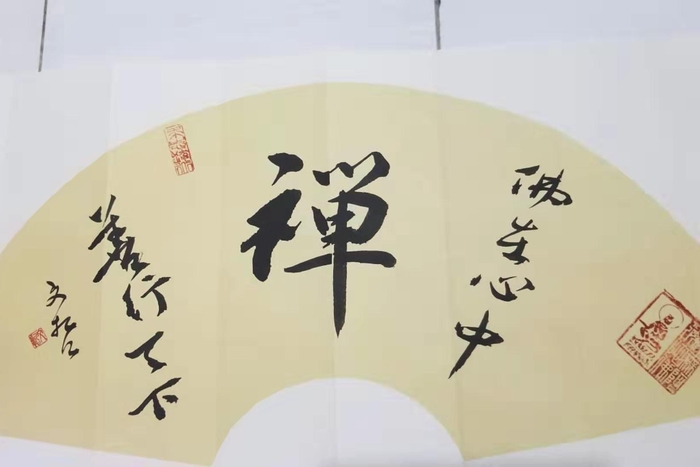 佛在心中
禅
善行天下
文哲